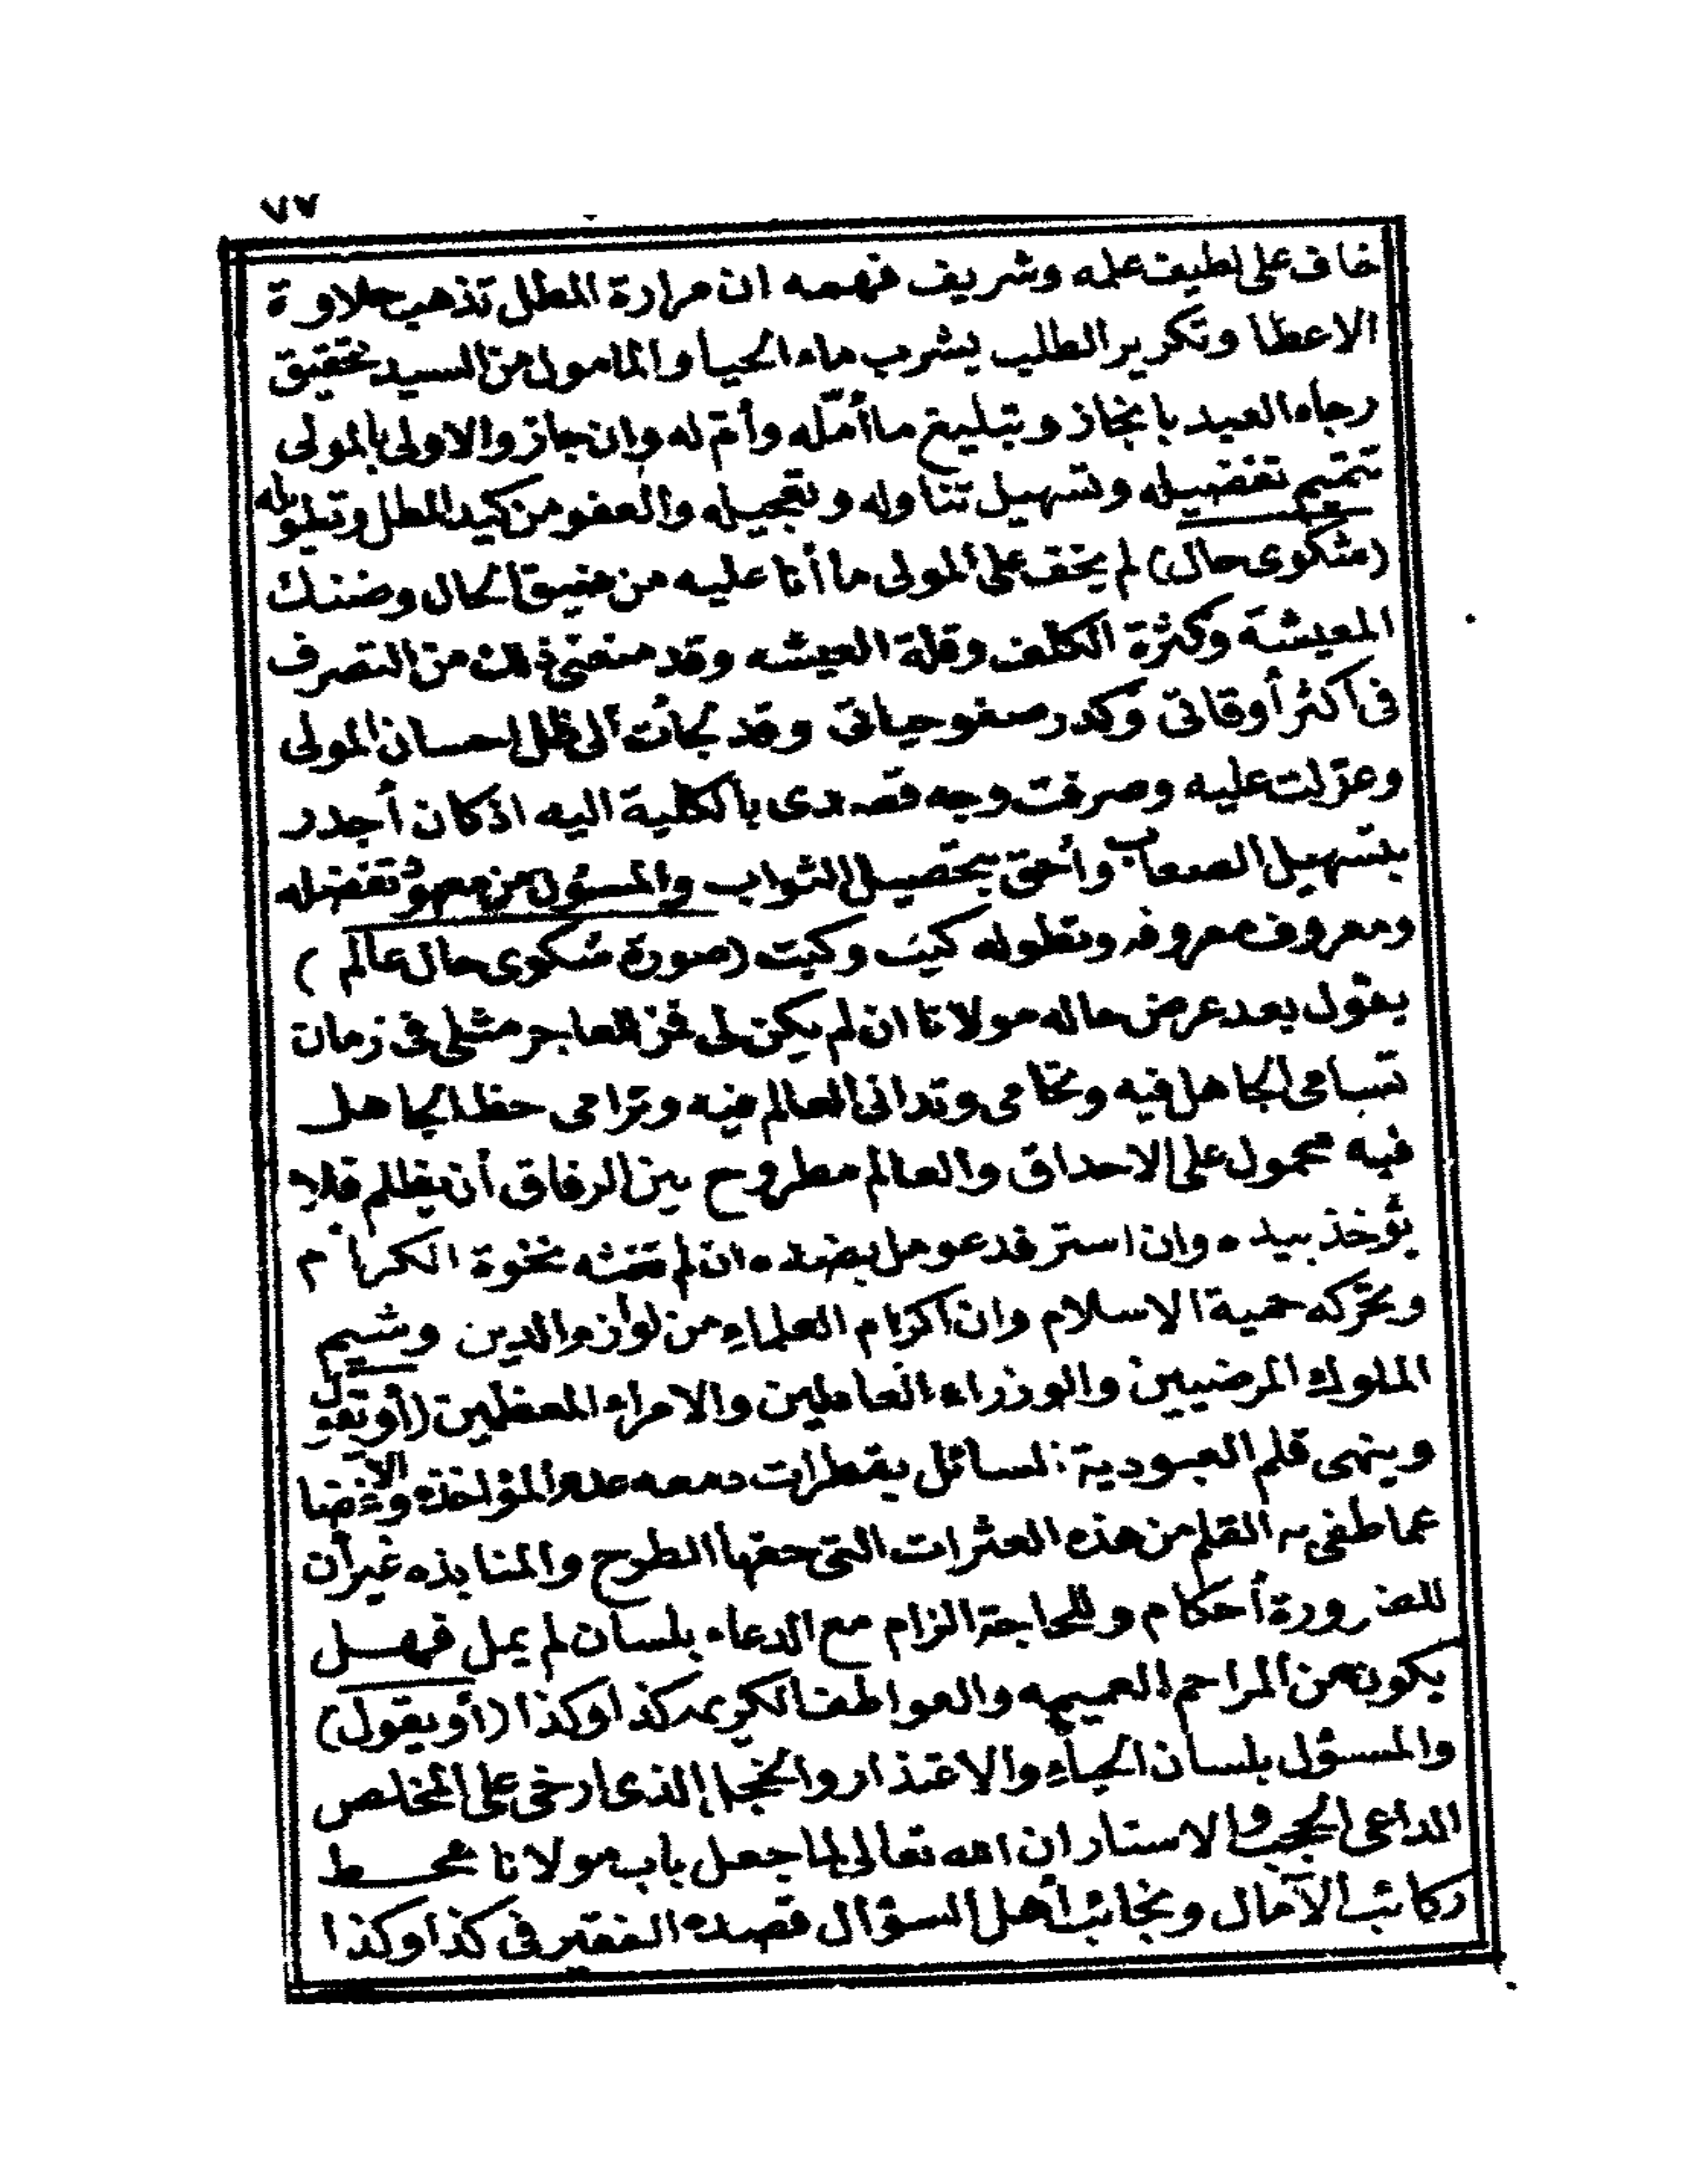 ٧٧
خاف على لطيف علمه وشريف فهمه ان مرارة المطل تذهب حلاوة
الاعطا وتكرير الطلب يشرب ماء الحيا والمامول من السيد تحقيق
رجاء العبيد بانجاز وتبليغ ما أمّله وأمّ له وان جاز والاولى بالمولى
تتميم تفضيله وتسهيل تناوله وتعجيله والعفو من كيد المطل وتطويله
(شكوى حال) لم يخف على المولى ما أنا عليه من ضيق الحال وضنك
المعيشة وكثرة الكلف وقلة العيشه وقد منعنى ذلك من التصرف
فى اكثر أوقاتى وكدر صفو حياتى وقد لجأت الى ظل احسان المولى
وعوّلت عليه وصرفت وجه قصدى بالكلية اليه اذ كان أجدر
بتسهيل الصعاب وأحق بتحصيل الثواب والمسؤل من معهود تفضله
ومعروف معروفه وتطوله كيت وكيت (صورة شكوى حال عالم)
يقول بعد عرض حاله مولانا ان لم يكن لى فمن للعاجز مثلى فى زمان
تسامى الجاهل فيه وتحامى وتدانى العالم فيه وترامى حظ الجاهل
فيه محمول على الاحداق والعالم مطروح بين الرفاق أن يظلم فلا
يؤخذ بيده وان استرفد عومل بضده ان لم تغثه نخوة الكرام
وتحركه حمية الاسلام وان اكرام العلماء من لوازم الدين وشيم
الملوك المرضيين والوزراء العاملين والامراء المعظمين (أو تقول
وينهى قلم العبودية لسائل بقطرات دمعه عدم المؤاخذه والاغضا
عما طغى به القلم من هذه العثرات التى حقها الطرح والمنابذه غير أن
للضرورة أحكام وللحاجة الزام مع الدعاء بلسان لم يمل فهل
يكون من المراحم العميمه والعواطف الكريمه كذا وكذا (أو يقول)
والمسؤل بلسان الحياء والاعتذار والخجل الذى ارخى على المخلص
الداعى الحجب والاستار ان الله تعالى لما جعل باب مولانا محط
ركائب الآمال ونجائب أهل السؤال قصده الفقير فى كذا وكذا